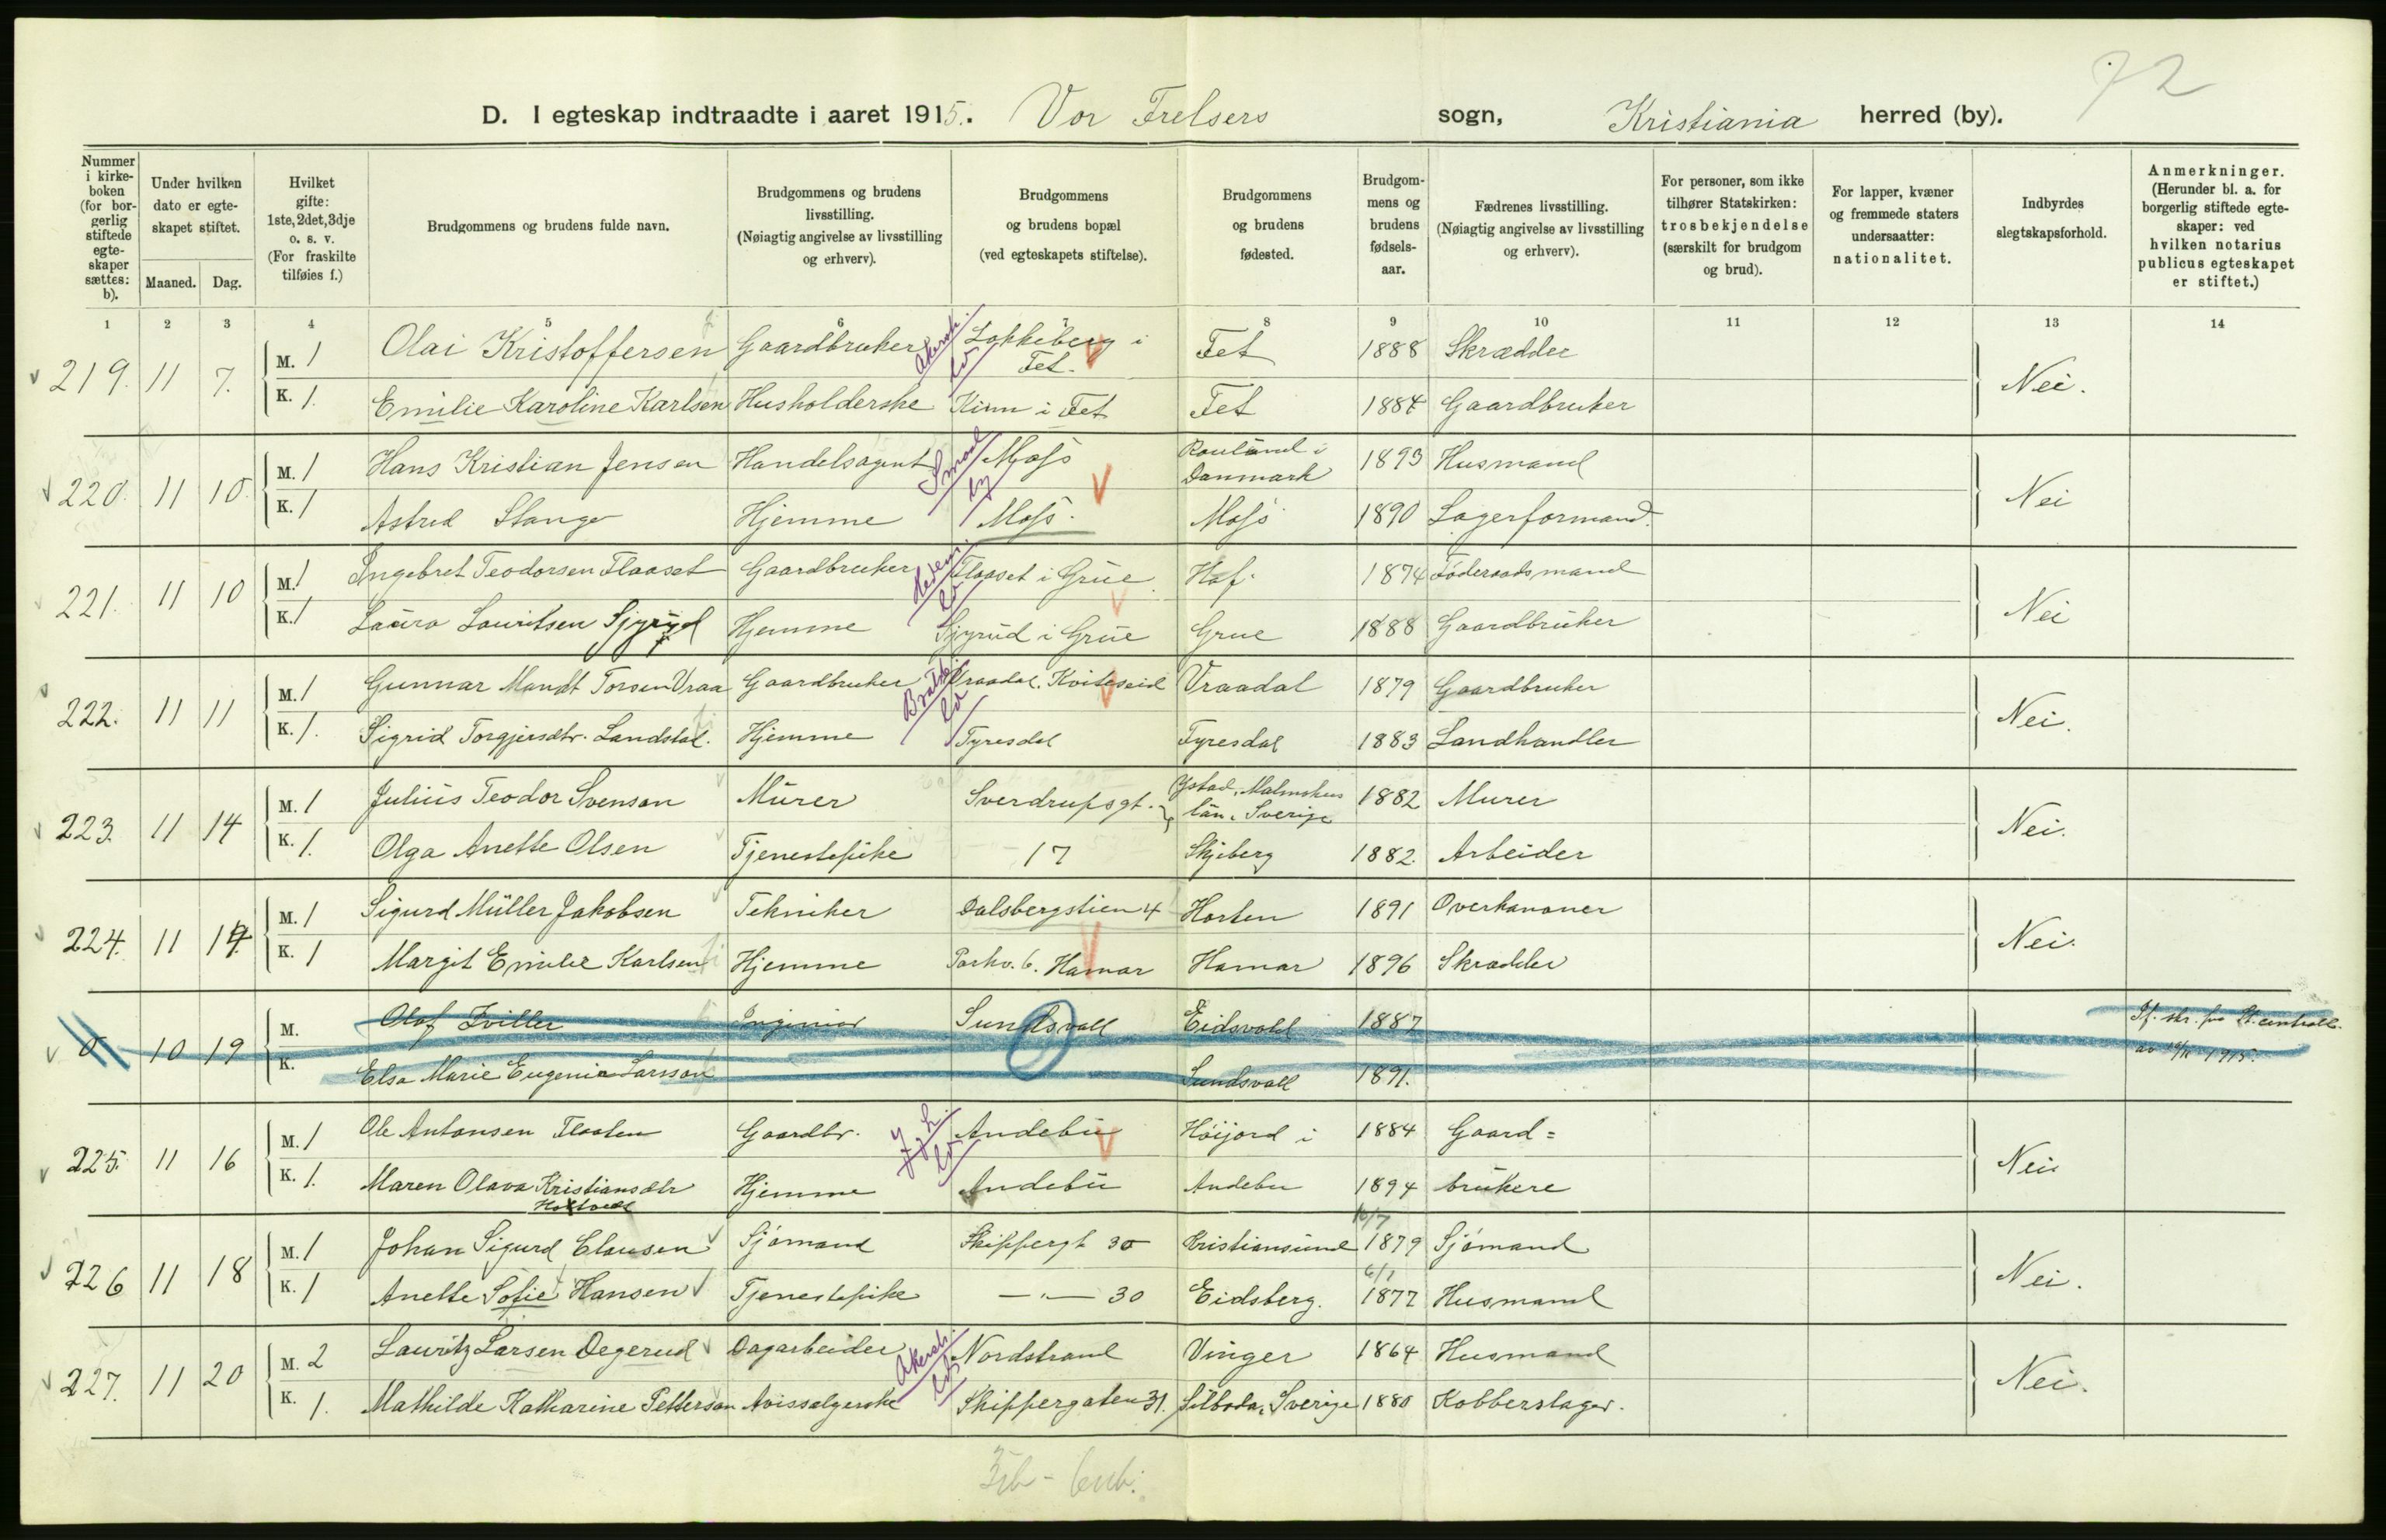 72
D. I egteskap indtraadte i aaret 1915. Vor Frelsers sogn, Kristiania herred (by).
Nummer i kirkeboken (for borgerlig stiftede egteskaper sættes: b).
Under hvilken dato er egteskapet stiftet.
Maaned. Dag.
Hvilket gifte: 1ste, 2det, 3dje o. s. v. (For fraskilte tilføies f.)
Brudgommens og brudens fulde navn.
Brudgommens og brudens livsstilling. (Nøiagtig angivelse av livsstilling og erhverv).
Brudgommens og brudens bopæl (ved egteskapets stiftelse).
Brudgommens og brudens fødested.
Brudgommens og brudens fødselsaar.
Fædrenes livsstilling. (Nøiagtig angivelse av livsstilling og erhverv).
For personer, som ikke tilhører Statskirken: trosbekjendelse (særskilt for brudgom og brud).
For lapper, kvæner og fremmede staters undersaatter: nationalitet.
Indbyrdes slegtskapsforhold.
Anmerkninger. (Herunder bl. a. for borgerlig stiftede egteskaper: ved hvilken notarius publicus egteskapet er stiftet.)
1 2 3 4 5 6 7 8 9 10 11 12 13 14
219. 11 7. M. 1 Olai Kristoffersen Gaardbruker Akersh. Lokkeberg i Fet. Fet 1888 Skrædder Nei.
K. 1. Emilie Karoline Karlsen Husholderske Kinn i Fet Fet 1884 Gaardbruker
220. 11 10. M. 1 Hans Kristian Jensen Handelsagent Smaal. by Moss Danmark 1893 Husmand Nei
K. 1 Astrid Stange Hjemme Moss. Moss 1890 Lagerformand.
221. 11 10 M. 1 Ingebret Teodorsen Flaaset Gaardbruker Hedem. Flaaset i Grue Hof. 1874 Föderaadsmand Nei
K. 1 Laura Lauritsen Sjyrud Hjemme Sjyrud i Grue Grue 1888 Gaardbruker
222. 11 11 M. 1 Gunnar Mandt Torsen Vraa Gaardbruker Bratsb. Vraadal. Kviteseid Vraadal 1879 Gaardbruker Nei.
K. 1. Sigrid Torgjersdtr. Landstad. Hjemme Tyresdal Fyresdal 1883 Landhandler
223. 11 14 M. 1 Julius Teodor Svenson Murer Sverdrupsgt. Ystad, Malmøhus län. Sverige 1882 Murer Nei.
K. 1. Olga Anette Olsen Tjenestepike 17 Skjeberg 1882. Arbeider
224. 11 14. M. 1 Sigurd Müller Jakobsen Tekniker Dalsbergstien 4 Horten 1891 Overkanoner Nei.
K. 1 Margit Emilie Karlsen Hjemme Parkv. 6. Hamar Hamar 1896 Skrædder
0 10 19 M. Olaf Zviller Ingeniør Sundsvall Eidsvold 1887 1915.
K. Elsa Marie Eugenia Larsson Sundsvall 1891.
225. 11 16 M. 1 Ole Antonsen Flaaten Gaardbr. Andebu Höijord i 1884 Gaard= Nei
K. 1. Maren Olava Kristiansdtr Hjemme Andebu Andebu 1894 brukere
226 11 18 M. 1 Johan Sigurd Clausen Sjömand Skippergt 30 Kristiansund 16/7 1879 Sjömand Nei.
K. 1 Anette Sofie Hansen Tjenestepike — " — 30 Eidsberg. 6/1 1877 Husmand
227. 11 20 M. 2 Lauritz Larsen Degerud Dagarbeider Akersh. Nordstrand Vinger 1864 Husmand Nei.
K. 1. Mathilde Katharine Petterson Avissælgerske Skippergaten 31. Silboda, Sverige 1880 Kobberslager.